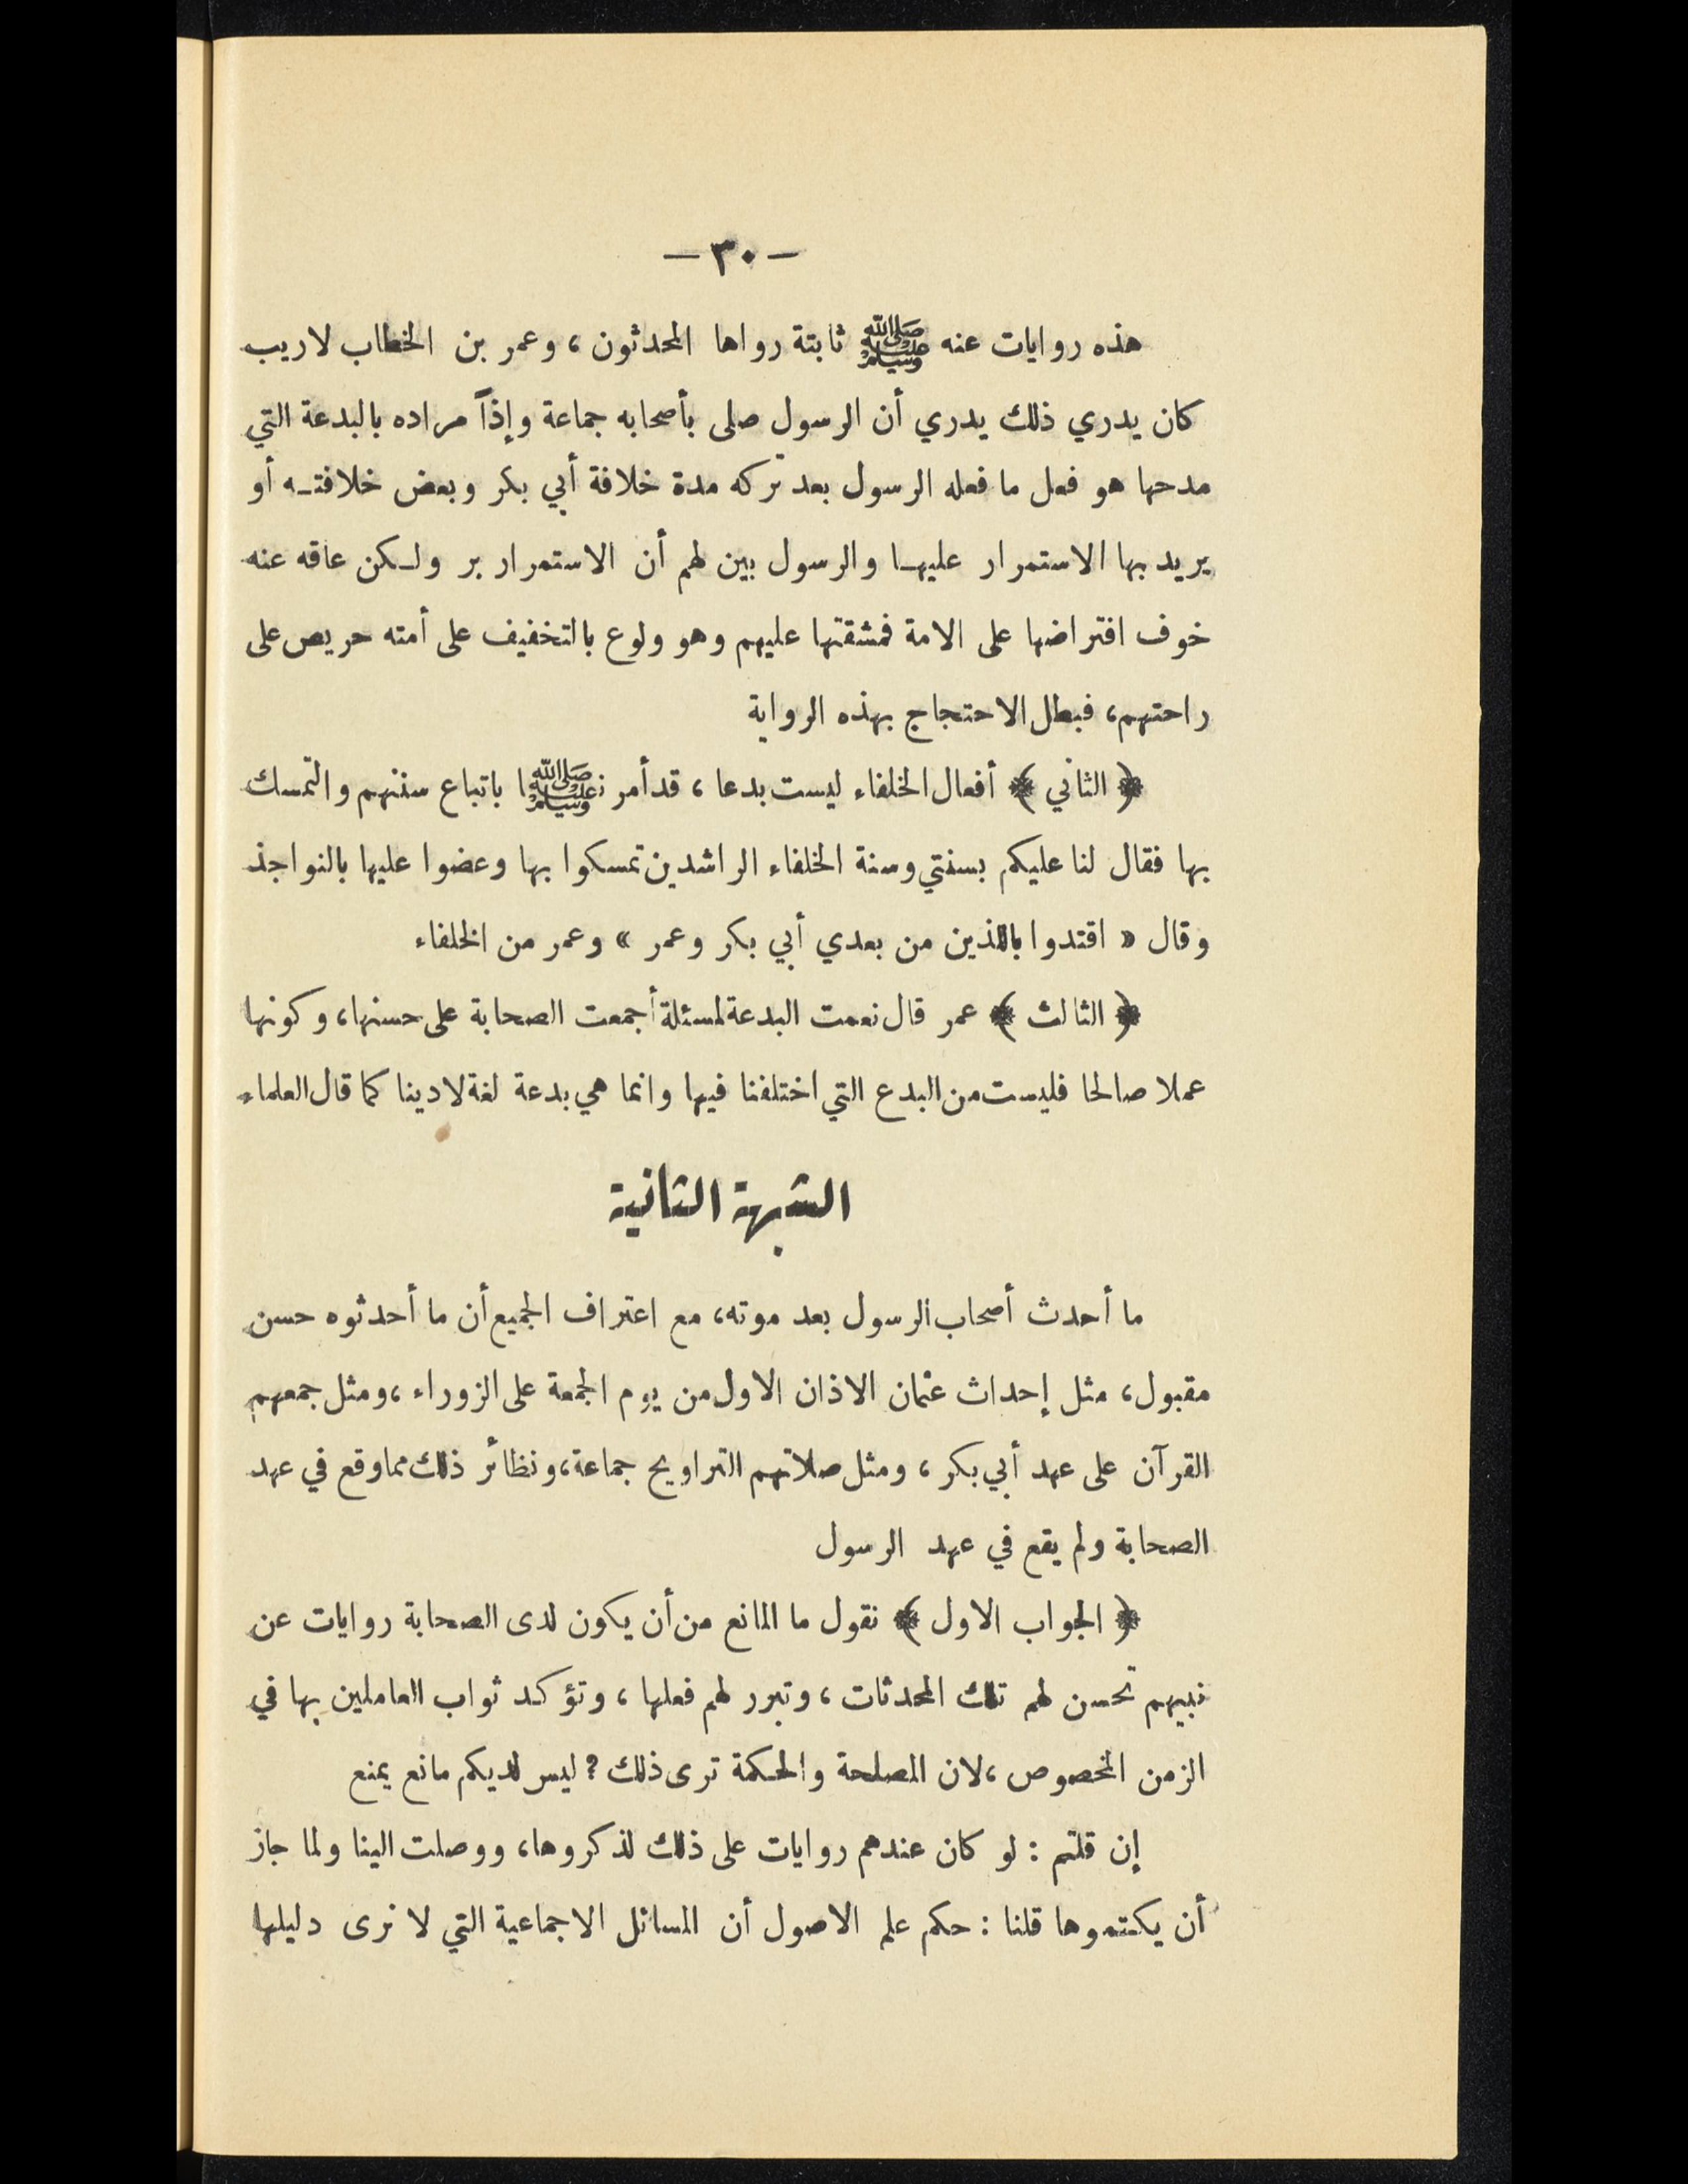 — ٣٠ —
هذه روايات عنه ﷺ ثابتة رواها المحدثون، وعمر بن الخطاب لاريب
كان يدري ذلك يدري أن الرسول صلى بأصحابه جماعة وإذاً مراده بالبدعة التي
مدحها هو فعل ما فعله الرسول بعد تركه مدة خلافة أبي بكر وبعض خلافتـه أو
يريد بها الاستمرار عليهـا والرسول بين لهم أن الاستمرار بر ولـكن عاقه عنه
خوف افتراضها على الامة فمشقتها عليهم وهو ولوع بالتخفيف على أمته حريص على
راحتهم، فبطل الاحتجاج بهذه الرواية
﴿ الثاني ﴾ أفعال الخلفاء ليست بدعا، قد أمرنا ﷺ باتباع سننهم والتمسك
بها فقال لنا عليكم بسنتي وسنة الخلفاء الراشدين تمسكوا بها وعضوا عليها بالنواجذ
وقال « اقتدوا باللذين من بعدي أبي بكر وعمر » وعمر من الخلفاء
﴿ الثالث ﴾ عمر قال نعمت البدعة لمسئلة أجمعت الصحابة على حسنها، وكونها
عملا صالحا فليست من البدع التي اختلفنا فيها وانما هي بدعة لغة لا دينا كما قال العلماء
الشبهة الثانية
ما أحدث أصحاب الرسول بعد موته، مع اعتراف الجميع أن ما أحدثوه حسن
مقبول، مثل إحداث عثمان الاذان الاول من يوم الجمعة على الزوراء، ومثل جمعهم
القرآن على عهد أبي بكر، ومثل صلاتهم التراويح جماعة، ونظائر ذلك مما وقع في عهد
الصحابة ولم يقع في عهد الرسول
﴿ الجواب الاول ﴾ نقول ما المانع من أن يكون لدى الصحابة روايات عن
نبيهم تحسن لهم تلك المحدثات، وتبرر لهم فعلها، وتؤكد ثواب العاملين بها في
الزمن المخصوص، لان المصلحة والحكمة ترى ذلك؟ ليس لديكم مانع يمنع
إن قلتم: لو كان عندهم روايات على ذلك لذكروها، ووصلت الينا ولما جاز
أن يكتموها قلنا: حكم علم الاصول أن المسائل الاجماعية التي لا نرى دليلها